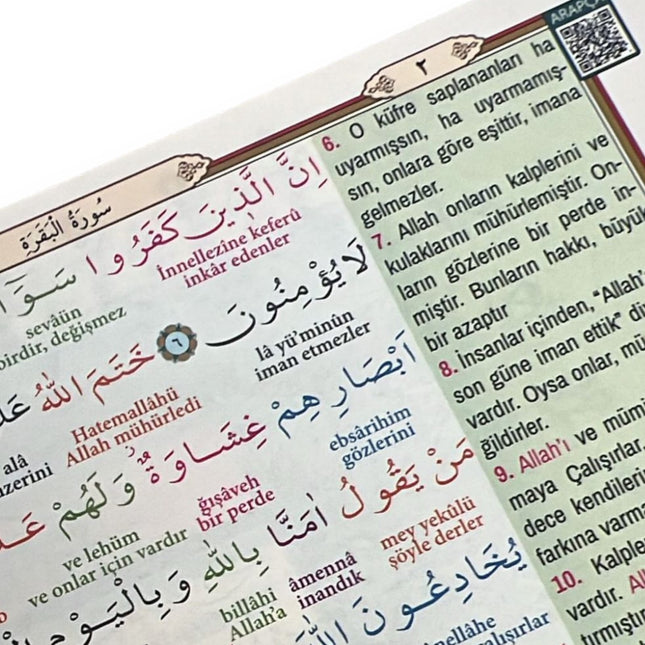 ARAPÇA
٢
سُورَةُ الْبَقَرَةِ
اِنَّ الَّذٖينَ كَفَرُوا سَوَٓاءٌ
İnnellezîne keferû
sevâün
inkâr edenler
birdir, değişmez
لَا يُؤْمِنُونَ ٦ خَتَمَ اللّٰهُ
lâ yü'minûn
Hatemallâhü
alâ
iman etmezler
Allah mühürledi
اَبْصَارِهِمْ غِشَاوَةٌ وَلَهُمْ
ebsârihim
ğışâveh
ve lehüm
gözlerini
bir perde
ve onlar için vardır
مَنْ يَقُولُ اٰمَنَّا بِاللّٰهِ وَبِالْيَوْمِ
mey yekülü
âmennâ
billâhi
şöyle derler
inandık
Allah'a
يُخَادِعُونَ اللّٰهَ
6. O küfre saplananları ha
uyarmışsın, ha uyarmamış-
sın, onlara göre eşittir, imana
gelmezler.
7. Allah onların kalplerini ve
kulaklarını mühürlemiştir. On-
ların gözlerine bir perde in-
miştir. Bunların hakkı, büyük
bir azaptır
8. İnsanlar içinden, "Allah'
son güne iman ettik" di
vardır. Oysa onlar, mü
ğildirler.
9. Allah'ı ve mümi
maya Çalışırlar,
dece kendileri
farkına varma
10. Kalple
vardır. Al
tırmıştır